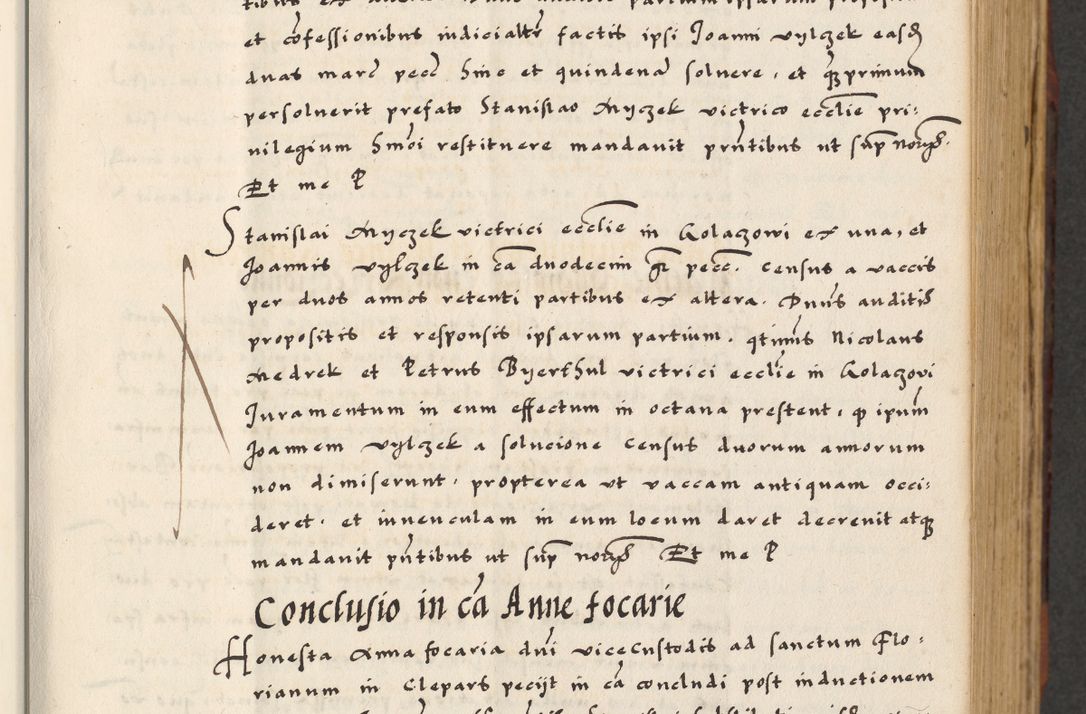 et cõfessionibus iudicialitr factis ipsi Joanni vylczek easdẽ
duas marc̃ pecc̃ hmõ et quindenã solvere, et q̃primum
persolverit prefato Stanislao Myczek victrico ecclie pri:
vilegium hmõi restituere mandavit prñtibus ut sup notarijs.
Et me P
Stanislai Myczek victrici ecclie in Golaczowi ex una, et
Joannis vylczek in cã duodecim gr̃ pecc̃. census a vaccis
per duos annos retenti partibus ex altera. Dnus auditis
propositis et responsis ipsarum partium. qtinus Nicolaus
Medrek et Petrus Byerthul victrici ecclie in Golaczovi
Juramentum in eum effectum in octava prestent, qp ipum
Joannem vylczek a solucione census duorum annorum
non dimiserunt, propterea ut vaccam antiquam occi:
deret. et iuvenculam in eum locum daret decrevit atq3
mandavit pñtibus ut sup notarijs Et me P
Conclusio in cã Anne focarie
Honesta Anna focaria dni vicecustodis ad sanctum Flo:
rianum in Clepars pecijt in cã concludi post inductionem